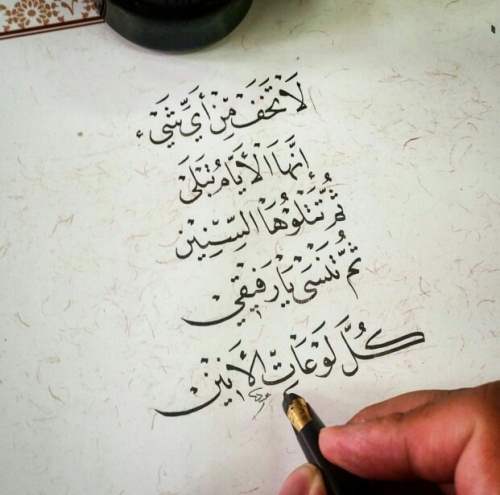 لَا تَخَفْ مِنْ أَيِّ شَيْء
إِنَّهَا الْأَيَّامُ تُبْلَى
ثُمَّ تَتْلُوْهَا السِّنِيْن
ثُمَّ تَنْسَى يَا رَفِيْقِي
كُلَّ لَوْعَاتِ الْأَنِيْن